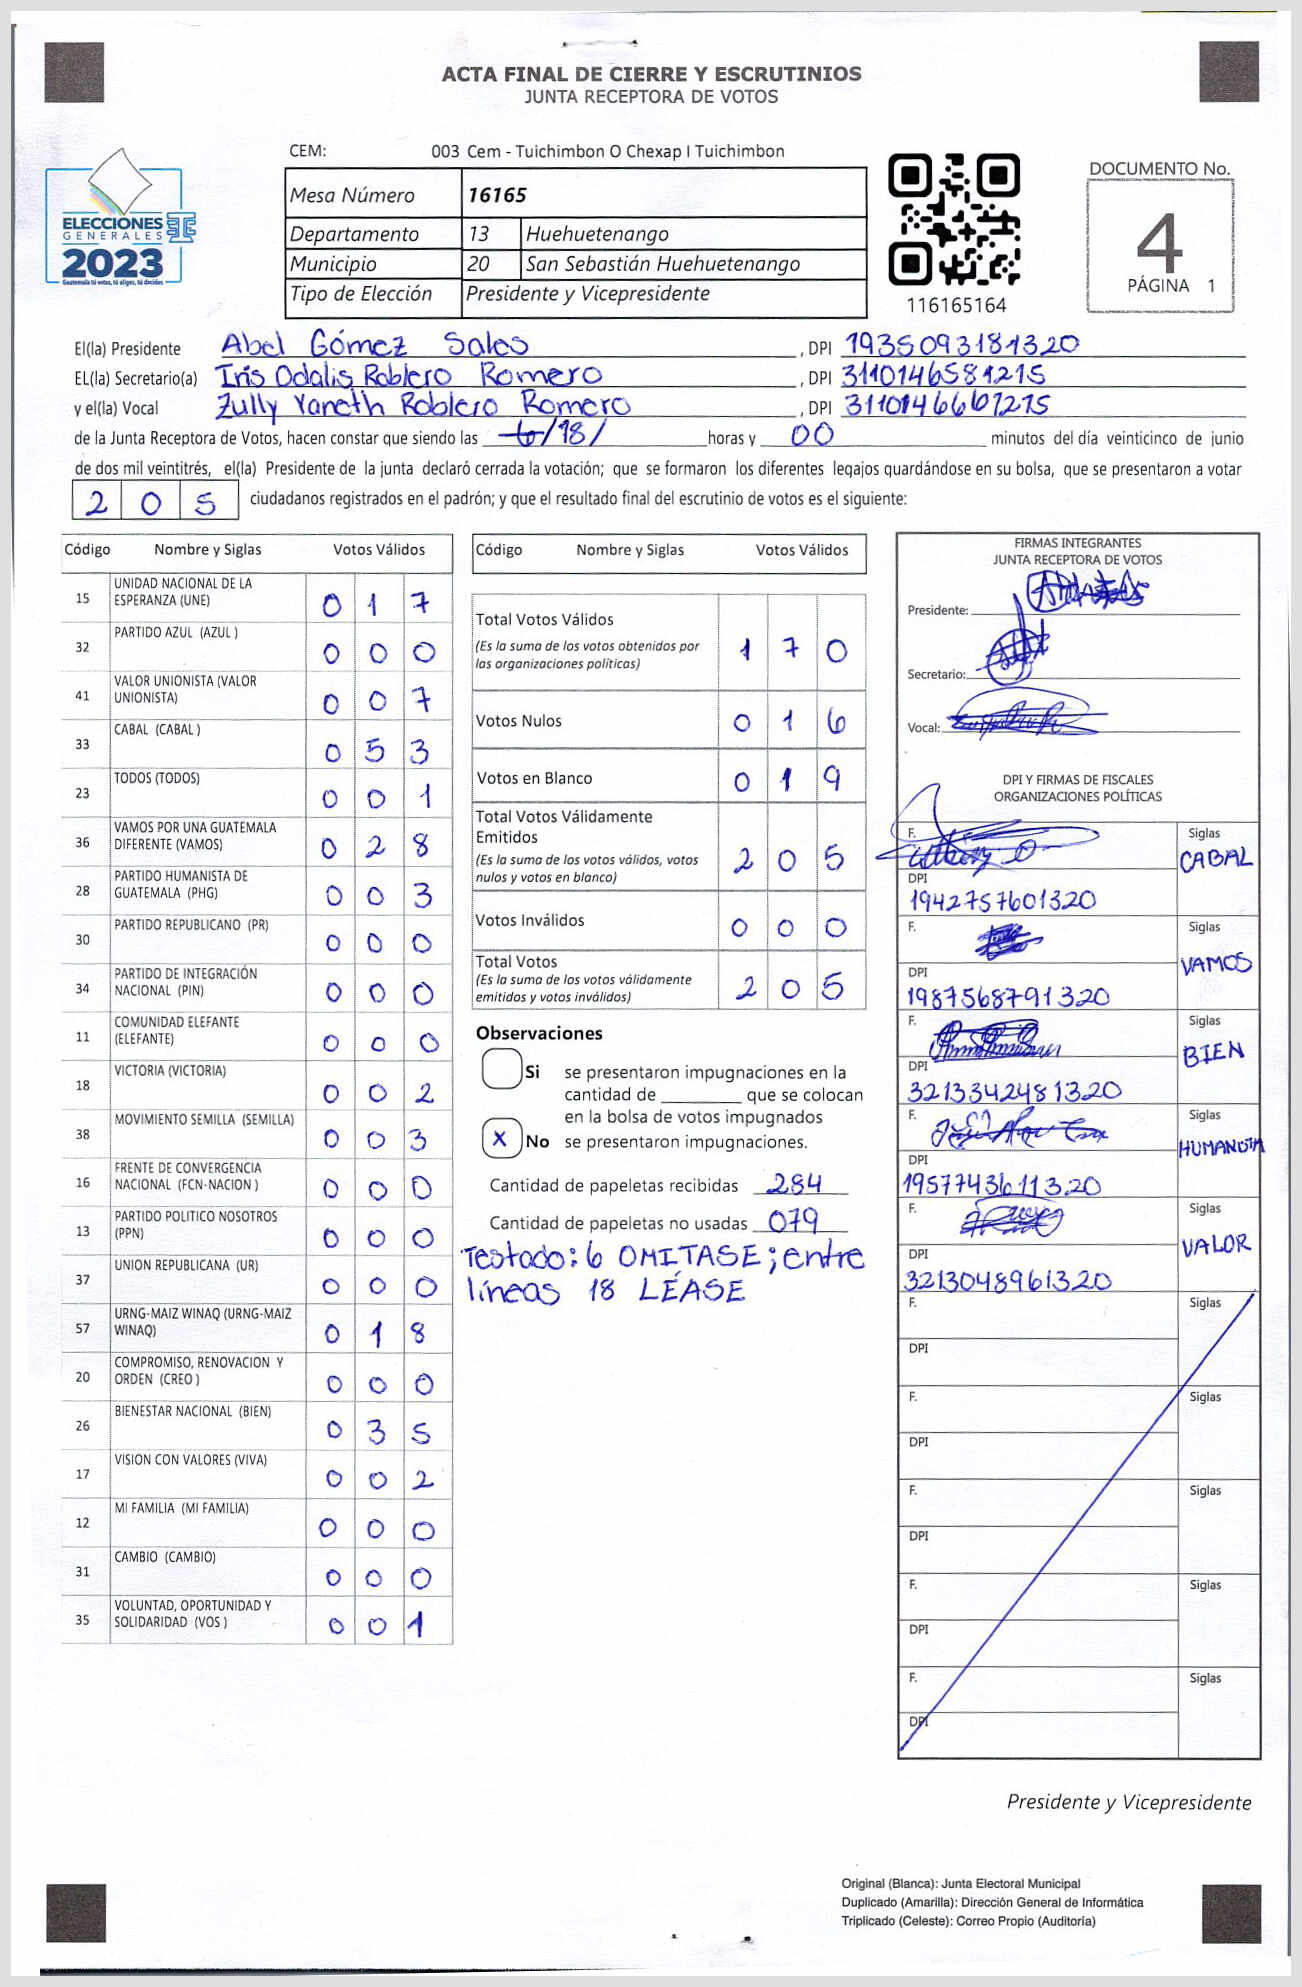 ACTA FINAL DE CIERRE Y ESCRUTINIOS
JUNTA RECEPTORA DE VOTOS
CEM: 003 Cem - Tuichimbon O Chexap I Tuichimbon
Mesa Número 16165
Departamento 13 Huehuetenango
Municipio 20 San Sebastián Huehuetenango
Tipo de Elección Presidente y Vicepresidente
ELECCIONES
GENERALES
2023
Guatemala tú votas, tú eliges, tú decides
116165164
DOCUMENTO No.
4
PÁGINA 1
El(la) Presidente Abel Gómez Sales, DPI 1935093181320
EL(la) Secretario(a) Iris Odalis Roblero Romero, DPI 3110146581215
y el(la) Vocal Zully Yaneth Roblero Romero, DPI 3110146661215
de la Junta Receptora de Votos, hacen constar que siendo las 6/18/ horas y 00 minutos del día veinticinco de junio
de dos mil veintitrés, el(la) Presidente de la junta declaró cerrada la votación; que se formaron los diferentes legajos quardándose en su bolsa, que se presentaron a votar
205 ciudadanos registrados en el padrón; y que el resultado final del escrutinio de votos es el siguiente:
Código Nombre y Siglas Votos Válidos
15 UNIDAD NACIONAL DE LA ESPERANZA (UNE) 0 1 7
32 PARTIDO AZUL (AZUL ) 0 0 0
41 VALOR UNIONISTA (VALOR UNIONISTA) 0 0 7
33 CABAL (CABAL ) 0 5 3
23 TODOS (TODOS) 0 0 1
36 VAMOS POR UNA GUATEMALA DIFERENTE (VAMOS) 0 2 8
28 PARTIDO HUMANISTA DE GUATEMALA (PHG) 0 0 3
30 PARTIDO REPUBLICANO (PR) 0 0 0
34 PARTIDO DE INTEGRACIÓN NACIONAL (PIN) 0 0 0
11 COMUNIDAD ELEFANTE (ELEFANTE) 0 0 0
18 VICTORIA (VICTORIA) 0 0 2
38 MOVIMIENTO SEMILLA (SEMILLA) 0 0 3
16 FRENTE DE CONVERGENCIA NACIONAL (FCN-NACION ) 0 0 0
13 PARTIDO POLITICO NOSOTROS (PPN) 0 0 0
37 UNION REPUBLICANA (UR) 0 0 0
57 URNG-MAIZ WINAQ (URNG-MAIZ WINAQ) 0 1 8
20 COMPROMISO, RENOVACION Y ORDEN (CREO ) 0 0 0
26 BIENESTAR NACIONAL (BIEN) 0 3 5
17 VISION CON VALORES (VIVA) 0 0 2
12 MI FAMILIA (MI FAMILIA) 0 0 0
31 CAMBIO (CAMBIO) 0 0 0
35 VOLUNTAD, OPORTUNIDAD Y SOLIDARIDAD (VOS ) 0 0 1
Código Nombre y Siglas Votos Válidos
Total Votos Válidos 1 7 0
(Es la suma de los votos obtenidos por
las organizaciones políticas)
Votos Nulos 0 1 6
Votos en Blanco 0 1 9
Total Votos Válidamente
Emitidos
(Es la suma de los votos válidos, votos
nulos y votos en blanco) 2 0 5
Votos Inválidos 0 0 0
Total Votos 2 0 5
(Es la suma de los votos válidamente
emitidos y votos inválidos)
Observaciones
Si se presentaron impugnaciones en la
cantidad de ________ que se colocan
en la bolsa de votos impugnados
X No se presentaron impugnaciones.
Cantidad de papeletas recibidas 284
Cantidad de papeletas no usadas 079
Testado: 6 OMITASE; entre
líneas 18 LÉASE
FIRMAS INTEGRANTES
JUNTA RECEPTORA DE VOTOS
Presidente:
Secretario:
Vocal:
DPI Y FIRMAS DE FISCALES
ORGANIZACIONES POLÍTICAS
F. Siglas CABAL
DPI 1942757601320
F. Siglas VAMOS
DPI 1987568791320
F. Siglas BIEN
DPI 3213342481320
F. Siglas HUMANISTA
DPI 1957743611320
F. Siglas VALOR
DPI 3213048961320
F. Siglas
DPI
F. Siglas
DPI
F. Siglas
DPI
F. Siglas
DPI
F. Siglas
DPI
Presidente y Vicepresidente
Original (Blanca): Junta Electoral Municipal
Duplicado (Amarilla): Dirección General de Informática
Triplicado (Celeste): Correo Propio (Auditoría)